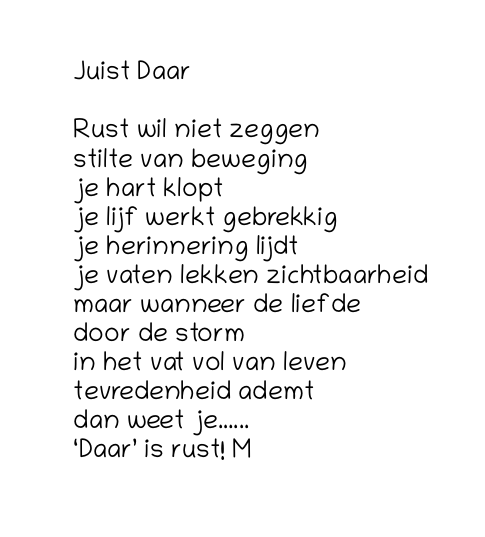 Juist Daar
Rust wil niet zeggen
stilte van beweging
je hart klopt
je lijf werkt gebrekkig
je herinnering lijdt
je vaten lekken zichtbaarheid
maar wanneer de liefde
door de storm
in het vat vol van leven
tevredenheid ademt
dan weet je......
‘Daar’ is rust! M